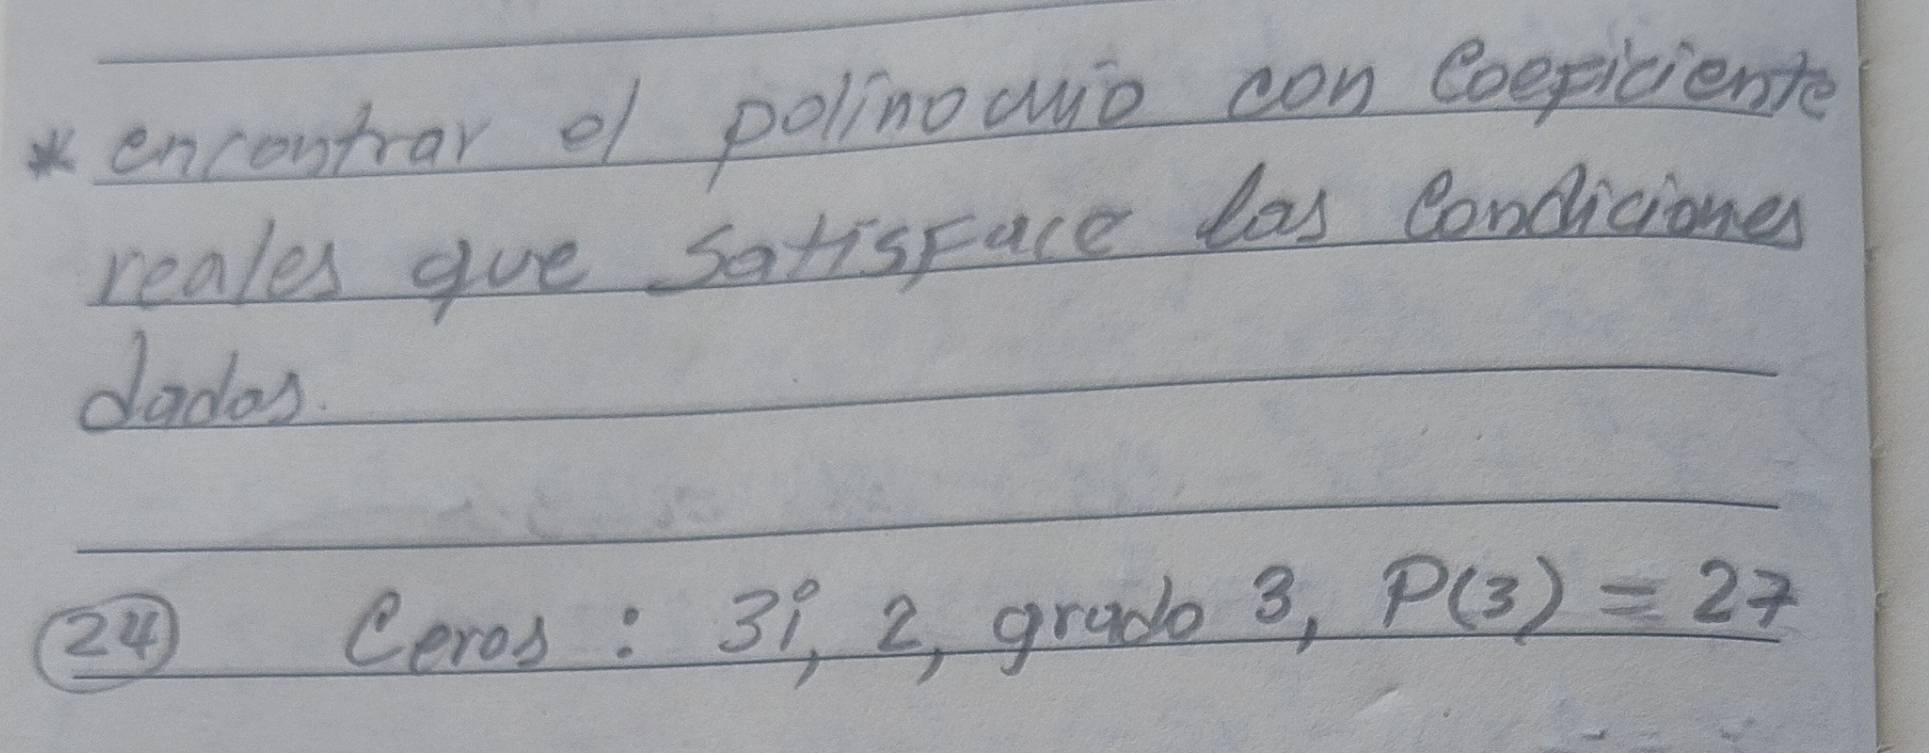 * encontrar el polinomio con Coeficiente
reales que Satisface las Condiciones
dadas.
24 Ceros: 3i, 2, grado 3, P(3) = 27